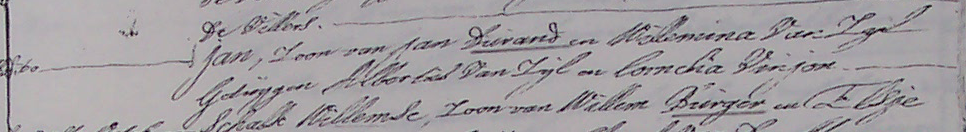 De Villers.
Jan, Zoon van Jan Durand en Willemina Van Zyl
Getuygen Albertus Van Zyl en Cornelia Vivjon
Schalk Willemse, Zoon van Willem Burger en Elsje